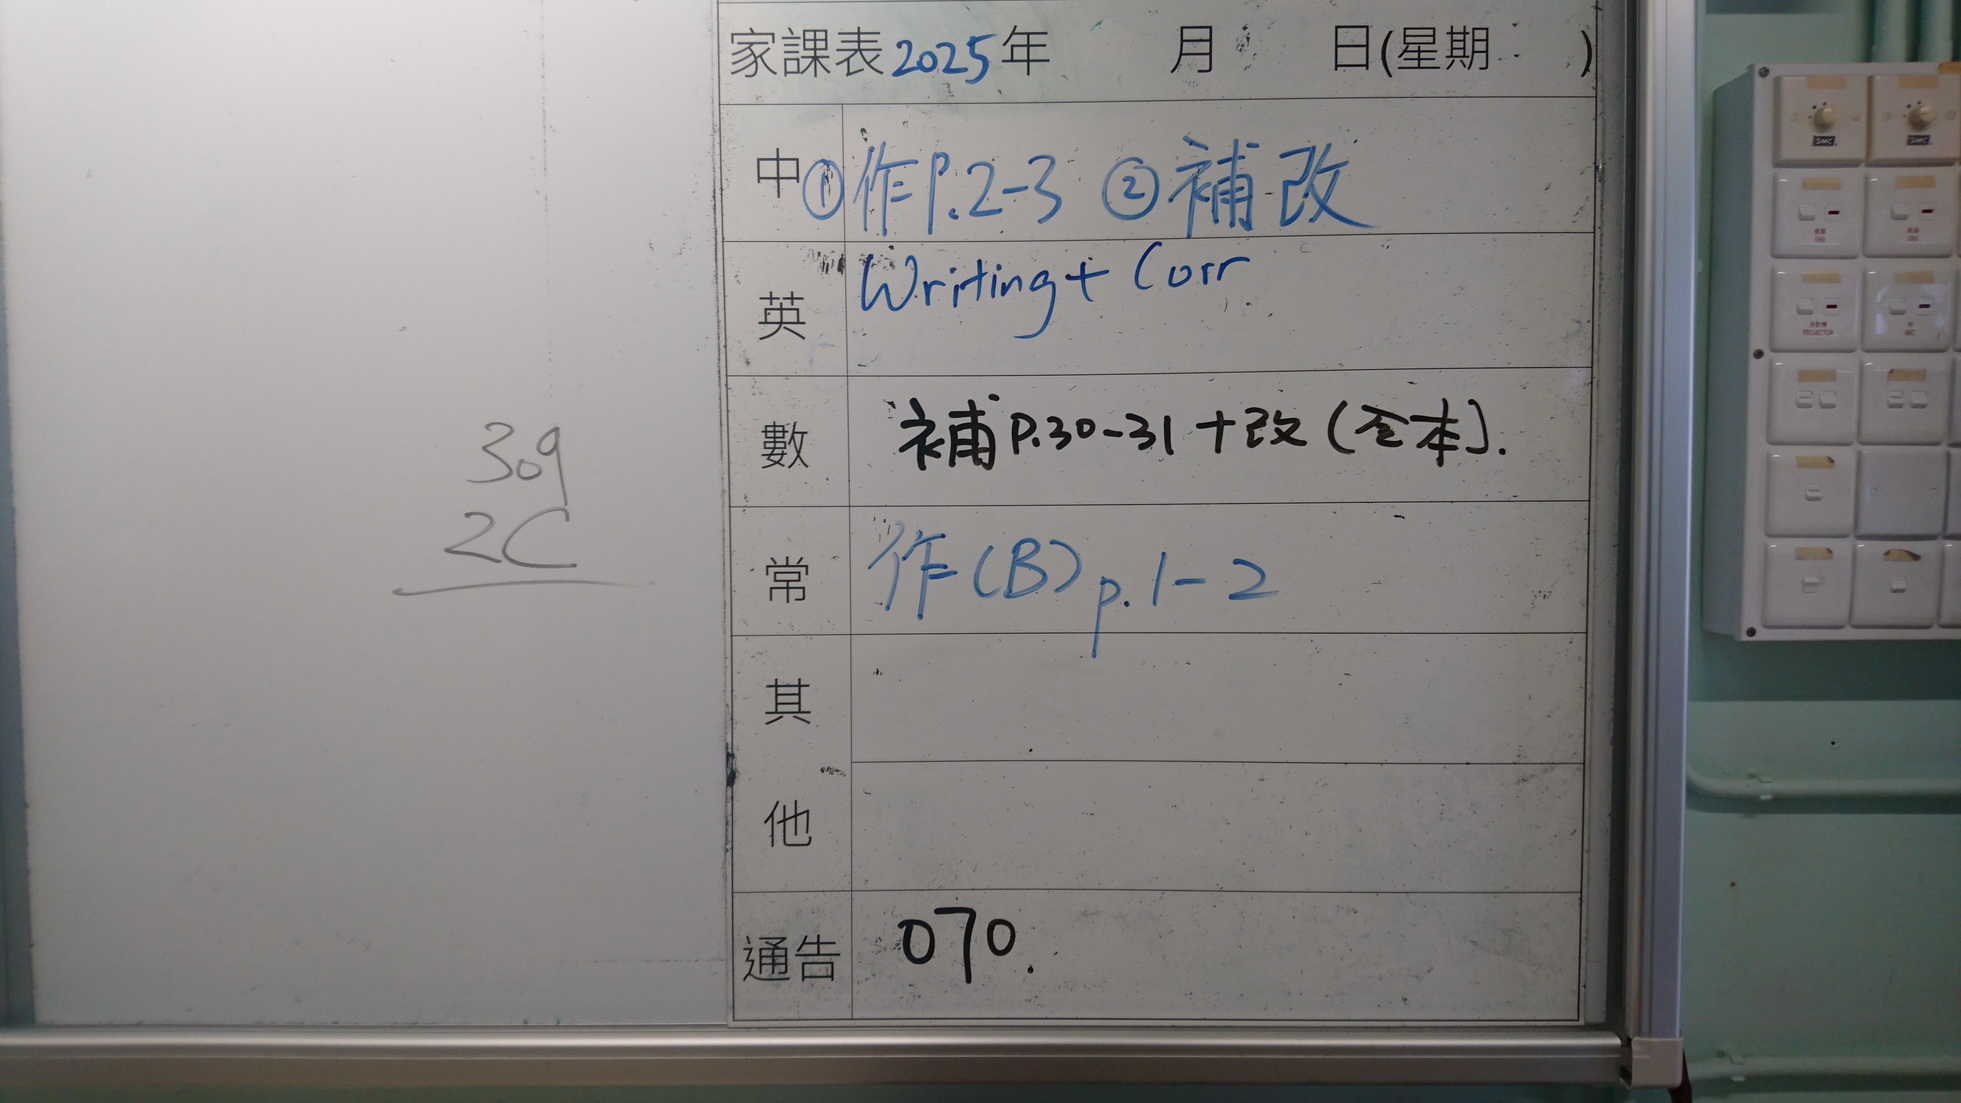 家課表2025年 月 日(星期 )
中 ①作P.2-3 ②補改
英 Writing + Corr
數 補P.30-31+改(全本).
常 作(B)p.1-2
其
他
通告 070.
309
2C
SMC
SMC
FAN
FAN
PROJECTOR
MIC